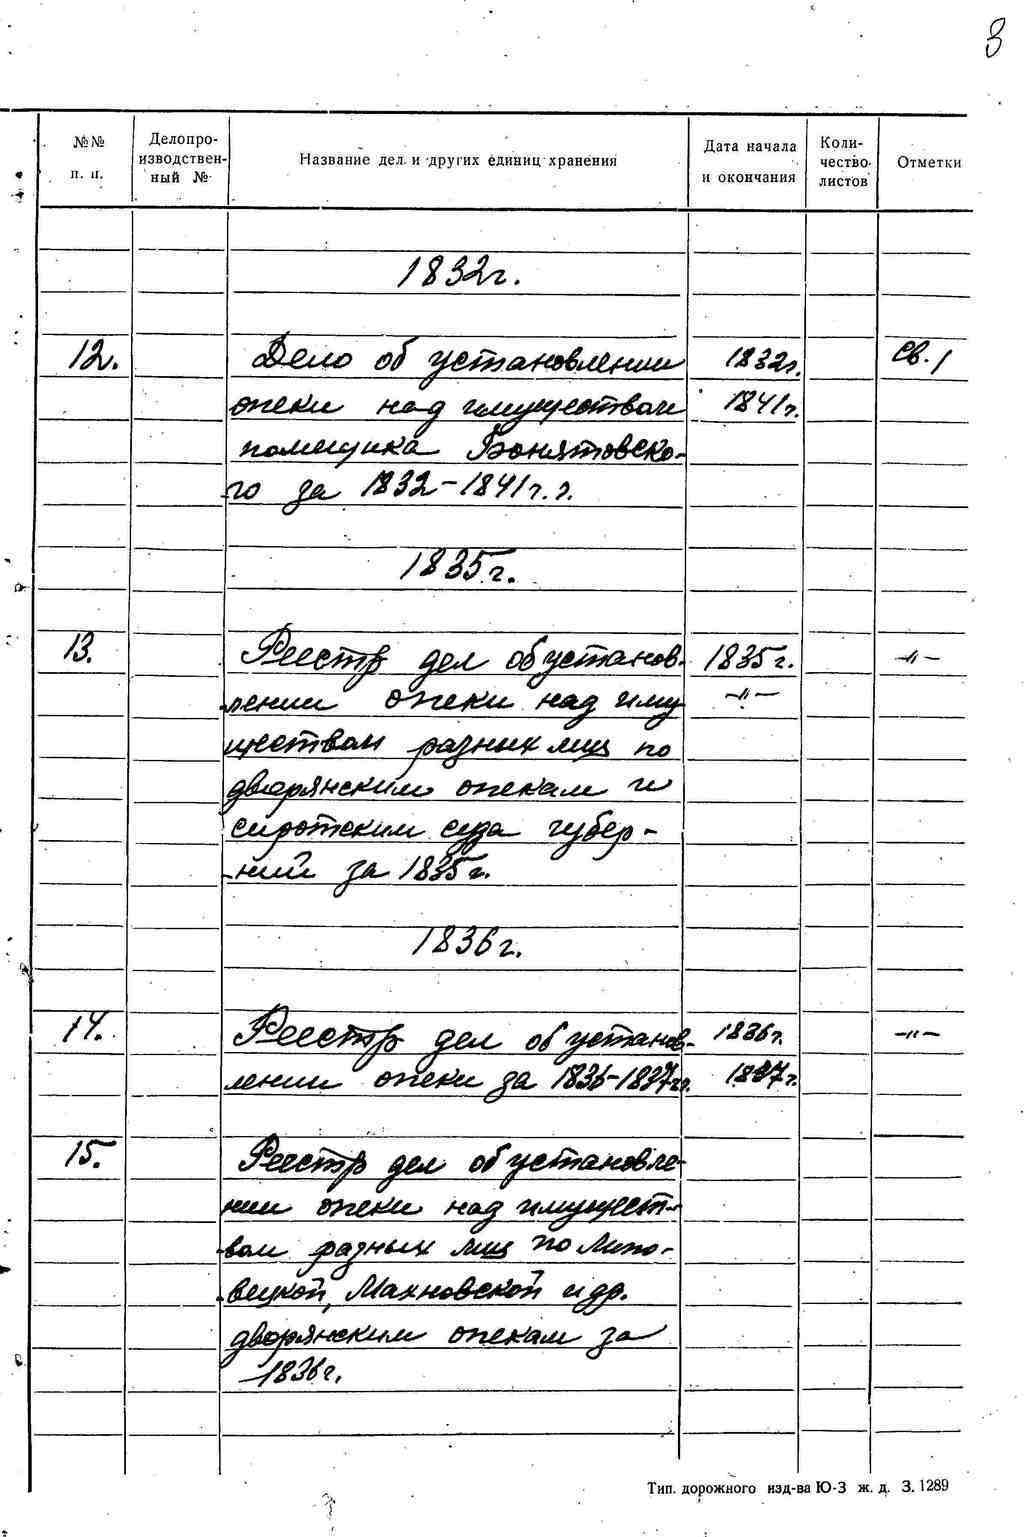 3
№№ п. п.
Делопро-
изводствен-
ный №
Название дел и других единиц хранения
Дата начала
и окончания
Коли-
чество
листов
Отметки
1832г.
12. Дело об установлении 1832г. Св. 1
опеки над имуществом 1841г.
помещика Понятовско-
го за 1832-1841г.г.
1835г.
13. Реестр дел об установ- 1835г. -"-
лении опеки над иму -"-
ществом разных лиц по
дворянским опекам и
сиротским суда губер-
ний за 1835г.
1836г.
14. Реестр дел об установ- 1836г. -"-
лении опеки за 1836-1837гг. 1837г.
15. Реестр дел об установле-
нии опеки над имущест-
вом разных лиц по Липо-
вецкой, Махновской и др.
дворянским опекам за
1836г.
Тип. дорожного изд-ва Ю-З ж. д. З. 1289